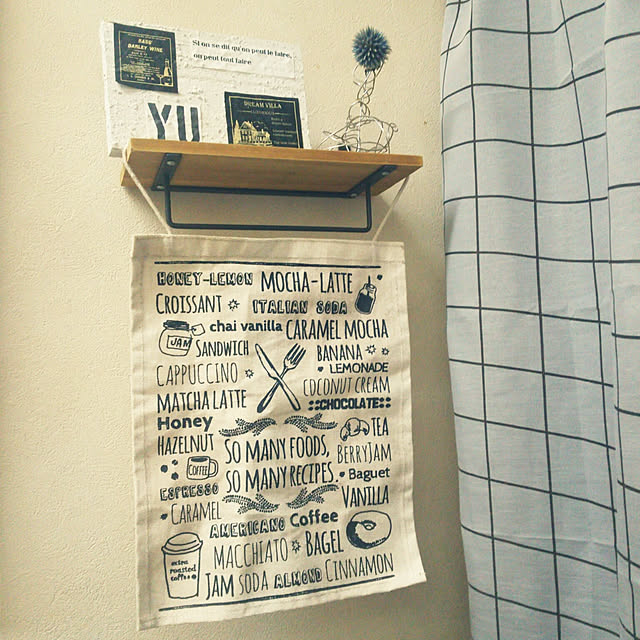 BASS
BARLEY WINE
Si on se dit qu'on peut le faire,
on peut tout faire
YU
DREAM VILLA
HONEY-LEMON MOCHA-LATTE
CROISSANT ITALIAN SODA
chai vanilla CARAMEL MOCHA
JAM SANDWICH BANANA
LEMONADE
CAPPUCCINO COCONUT CREAM
MATCHA LATTE CHOCOLATE
Honey TEA
HAZELNUT SO MANY FOODS, BERRY JAM
COFFEE SO MANY RECIPES. Baguet
ESPRESSO VANILLA
CARAMEL AMERICANO Coffee
MACCHIATO BAGEL
extra
roasted
coffee
JAM SODA ALMOND CINNAMON